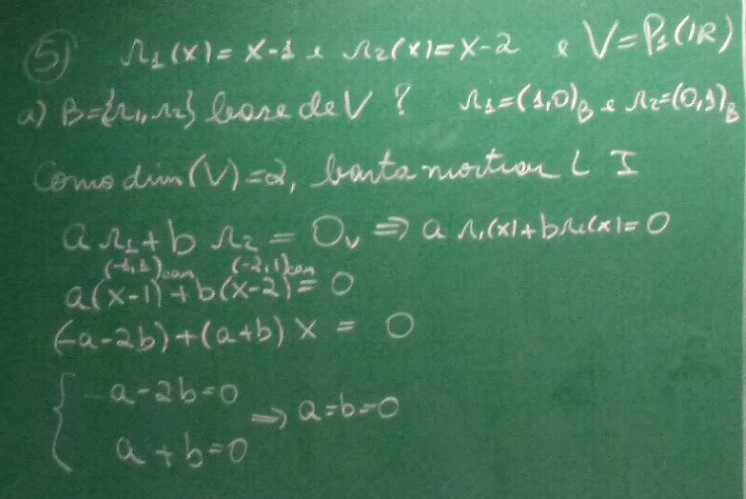 5) r₁(x) = x-1 e r₂(x) = x-2 e V = P₁(IR)
a) B={r₁,r₂} base de V ? r₁=(1,0)_B e r₂=(0,1)_B
Como dim(V)=2, basta mostrar L I
a r₁ + b r₂ = 0_V ⇒ a r₁(x) + b r₂(x) = 0
(-1,1)_can (-2,1)_can
a(x-1) + b(x-2) = 0
(-a-2b)+(a+b) x = 0
{ -a-2b=0
⇒ a=b=0
a+b=0